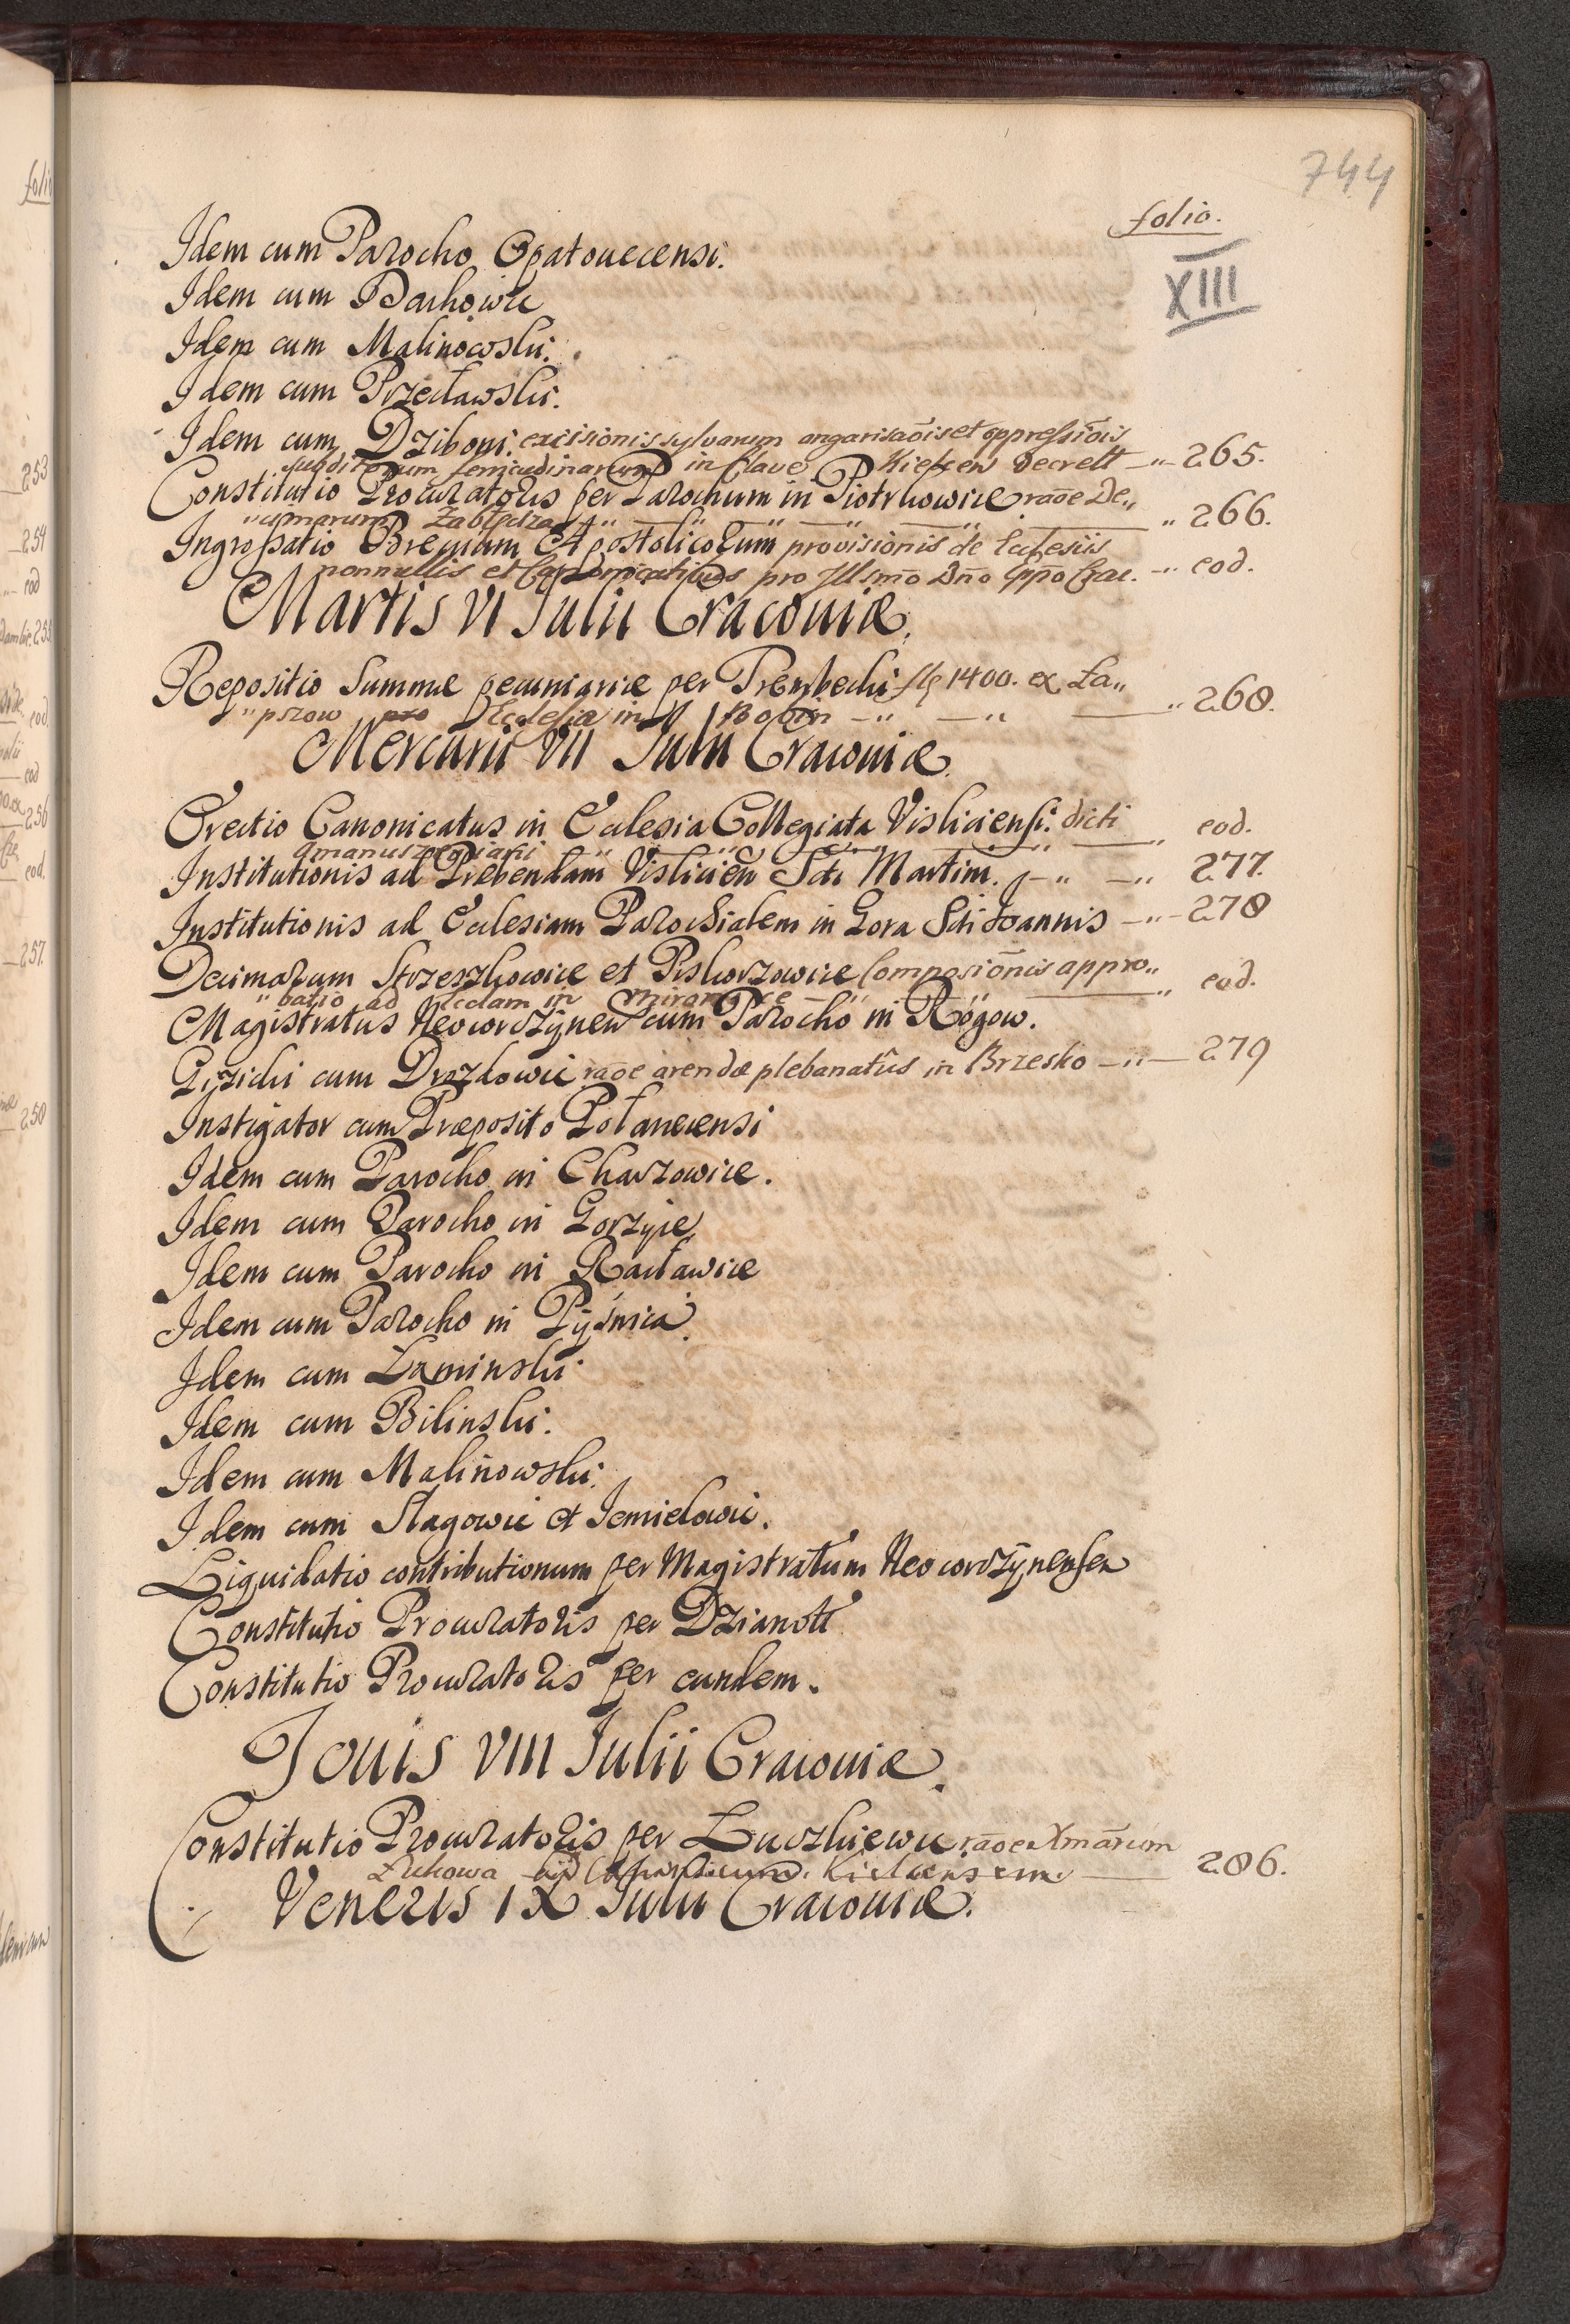 744
folio.
XIII
Idem cum Parocho Opatouecensi.
Idem cum Bachowic
Idem cum Malinowski.
Idem cum Przecławski.
Idem cum Dziboni. excisionis sylvarum angarisaōis et oppressiōis
subditorum in Clave Kielcen Decrett 265.
Constitutio Procuratoris per Parochum in Piotrkowice raōe De„
„cimarum 266.
Ingrossatio Brevium Apostolicorum provisionis de Ecclesiis
nonnullis et Canonicatibus pro Illsmo Dno Eppo Crac. eod.
Martis VI Julii Cracouiæ.
Repositio Summæ pecuniariæ per Trembecki flp 1400. ex La„
„pszow pro Ecclesia in Bobin 268.
Mercurii VII Julii Cracouiæ
Erectio Canonicatus in Ecclesia Collegiata Visliciensi. dicti eod.
Institutionis ad Prebendam Vislicień Sti Martini. 277.
Institutionis ad Ecclesiam Parochialem in Gora Sti Joannis 278
Decimarum Strzeszkowice et Piskorzowice Composiōnis appro„
„batio ad Medam in eod.
Magistratus Neocorczynen cum Parocho in Rogow.
Gizicki cum Drozdowic raōe arendæ plebanatûs in Brzesko 279
Instigator cum Præposito Połanecensi
Idem cum Parocho in Charzowice.
Idem cum Parocho in Gorzyce
Idem cum Parocho in Racławice
Idem cum Parocho in Pyśnica.
Idem cum Łaminski
Idem cum Bilinski.
Idem cum Malinowski.
Idem cum Slagowic et Jemielowic.
Liquidatio contributionum per Magistratum Neocorczynensen
Constitutio Procuratoris per Dzianott
Constitutio Procuratoris per eundem.
Jouis VIII Julii Cracouiæ.
Constitutio Procuratoris per Luczkiewic raōe Xmārum
Zukowa Kielcensem. 286.
Veneris IX Julii Cracouiæ.